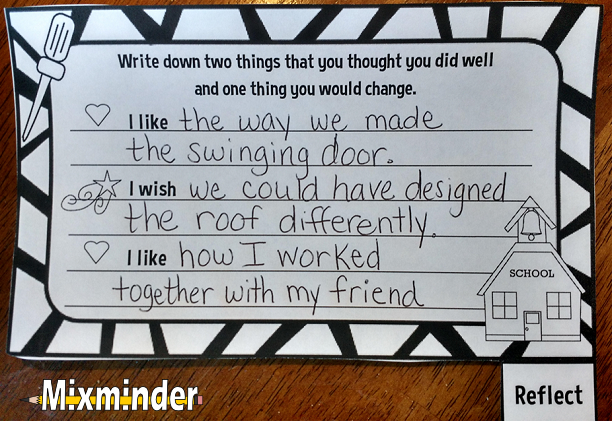 Write down two things that you thought you did well
and one thing you would change.
I like the way we made
the swinging door.
I wish we could have designed
the roof differently.
I like how I worked
together with my friend
SCHOOL
Mixminder
Reflect